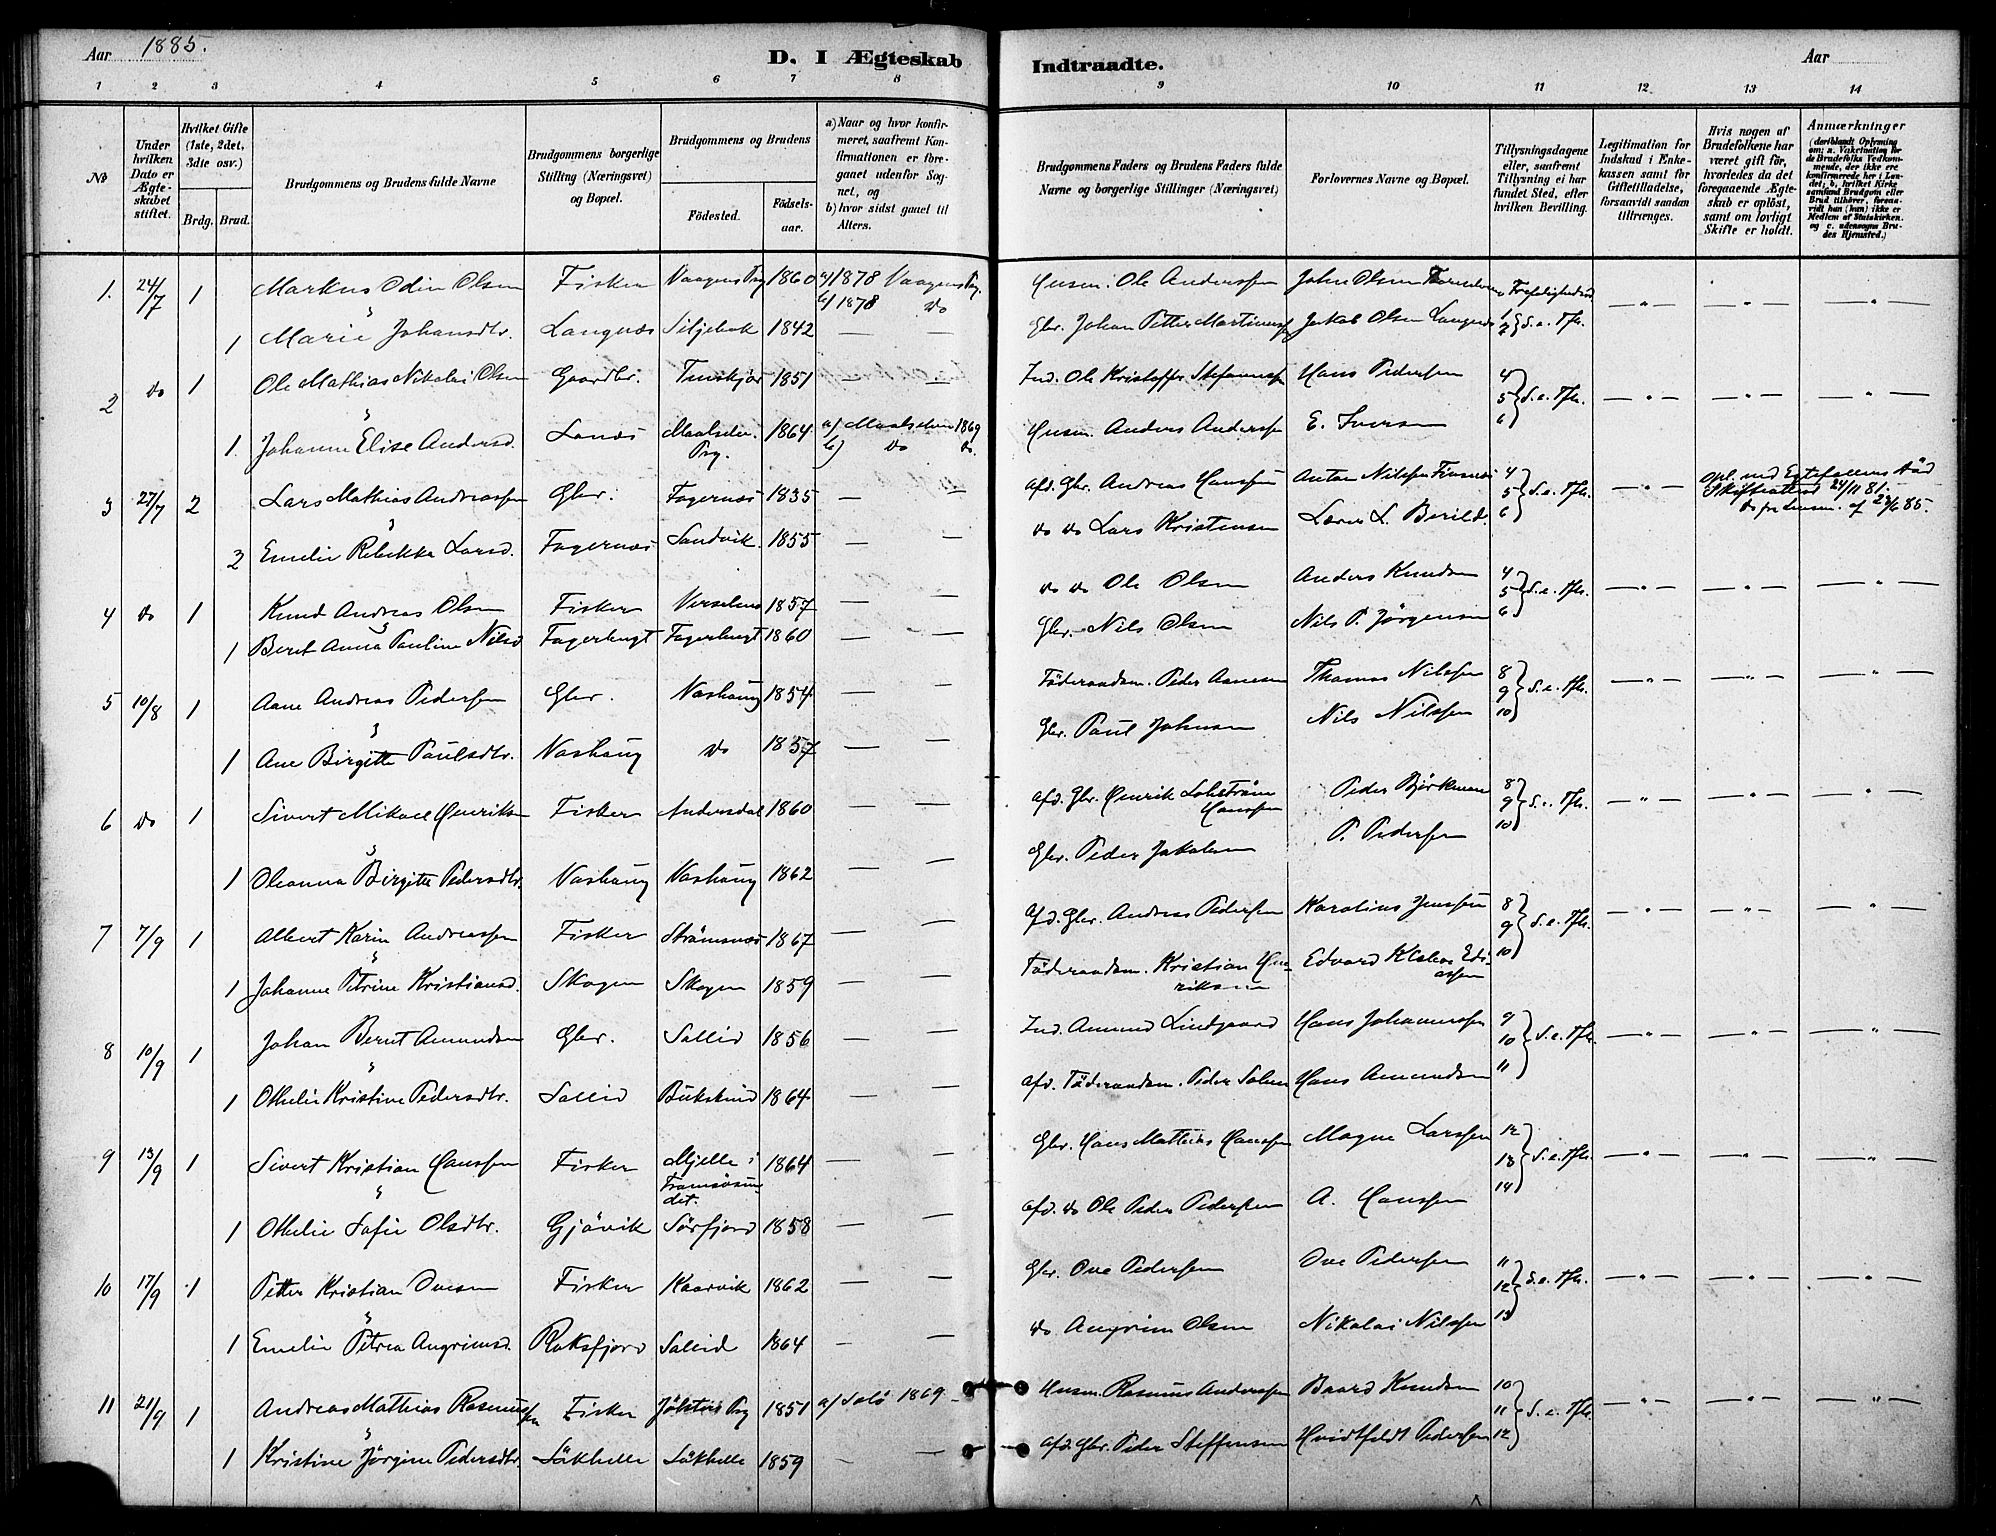 Aar 1885.
D. I Ægteskab Indtraadte.
Aar
1 2 3 4 5 6 7 8 9 10 11 12 13 14
No
Under hvilken Dato er Ægteskabet stiftet.
Hvilket Gifte (1ste, 2det, 3dte osv.)
Brdg. Brud.
Brudgommens og Brudens fulde Navne
Brudgommens borgerlige Stilling (Næringsvei) og Bopæl.
Brudgommens og Brudens
Fødested. Fødselsaar.
a) Naar og hvor konfirmeret, saafremt Konfirmationen er foregaaet udenfor Sognet, og
b) hvor sidst gaaet til Alters.
Brudgommens Faders og Brudens Faders fulde Navne og borgerlige Stillinger (Næringsvei)
Forlovernes Navne og Bopæl.
Tillysningsdagene eller, saafremt Tillysning ei har fundet Sted, efter hvilken Bevilling.
Legitimation for Indskud i Enkekassen samt for Giftetilladelse, forsaavidt saadan tiltrænges.
Hvis nogen af Brudefolkene har været gift før, hvorledes da det foregaaende Ægteskab er opløst, samt om lovligt Skifte er holdt.
Anmærkninger
(deriblandt Oplysning om: a. Vakcination for de Brudefolks Vedkommende, der ikke ere konfirmerede her i Landet; b, hvilket Kirkesamfund Brudgom eller Brud tilhører, forsaavidt han (hun) ikke er Medlem af Statskirken. og c. udensogns Brudes Hjemsted.)
1. 24/7 1 Markus Odin Olsen Fisker Vaagens Prg 1860 a) 1878 Vaagens Prg. Husm. Ole Anderssen John Olsen
b) 1878 Do
1 Marie Johansdtr. Langnæs Siljebok 1842 — — Gbr. Johan Petter Martinussen Jakob Olsen Langnes S. e. Tfh. — " — — " — — " —
2 Do 1 Ole Mathias Nikolai Olsen Gaardbr. Tenskjær 1851 — — Ind. Ole Kristoffer Steffenssen Hans Pedersen 4 5 6 } S. e. Tfh. — " — — " — — " —
1. Johanne Elise Andersd. Lanes Maalselv. Prg. 1864 a) Maalselven 1869 Husm. Anders Anderssen E. Iversen
b) Do Do.
3 27/7 2 Lars Mathias Andreassen Gbr. Fagernæs 1835 — — afd. Gbr. Andreas Hanssen Anton Nilssen Finnæs 4 5 6 } S. e. Tfh. — " — opl. ved Egtefællens Død
Skifteattest 24/11 81.
Do fra Lensm. af 23/6 85.
2 Emelie Rebekka Larsd. Fagernæs Sandvik. 1855 — — do do Lars Kristensen Lars L. Berild.
4 Do 1 Knud Andreas Olsen Fisker 1857 — — do do Ole Olsen Anders Knudsen 4 5 6 } S. e. Tfh. — " — — " — — " —
1 Berit Anna Pauline Nilsd Fagerbugt Fagerbugt 1860 — — Gbr. Nils Olsen Nils P. Jørgensen
5 10/8 1 Aane Andreas Pedersen Gbr. Vashaug 1854 — — Føderaadsm. Peder Aanesen Thomas Nilssen 8 9 10 } S. e. Tfh. — " — — " — — " —
1 Ane Birgitte Paulsdtr. Vashaug do 1857 — — Gbr. Paul Johnsen Nils Nilssen
6 Do 1 Sivert Mikael Henriksen Fisker Andersdal 1860 — — afd. Gbr. Henrik Hanssen Peder Björkman 8 9 10 } S. e. Tfh. — " — — " — — " —
1 Oleanna Birgitte Pedersdtr. Vashaug Vashaug 1862 — — Gbr. Peder Jakobsen P. Pedersen
7 7/9 1 Albert Karin Andreassen Fisker Strømsnæs 1867 — — Afd. Gbr. Andreas Pedersen Karolius Jenssen 8 9 10 } S. e. Tfh. — " — — " — — " —
1 Johanne Petrine Kristiansd. Skogen Skogen 1859 — — Føderaadsm. Kristian Henriksen Edvard
8 10/9 1 Johan Bernt Amundsen Gbr. Sollid 1856 — — Ind. Amund Lindgaard Hans Johannessen 9 10 11 } S. e. Tfh. — " — — " — — " —
1 Othelie Kristine Pedersdtr. Sollid Bukskind 1864 — — afd. Føderaadsm. Peder Hans Amundsen
9 13/9 1 Sivert Kristian Hanssen Fisker Mjelle i Tromsøsundet. 1864 — — Gbr. Hans Mathias Hanssen Magne Larssen 12 13 14 } S. e. Tfh. — " — — " — — " —
1 Othelie Sofie Olsdtr. Gjøvik Sørfjord 1858 — — afd. do Ole Peder Pedersen A. Hanssen
10 17/9 1 Petter Kristian Ovesen Fisker Kaarvik 1862 — — Gbr. Ove Pedersen Ove Pedersen 11 12 13 } S. e. Tfh. — " — — " — — " —
1 Emelie Petrea Angrimsd. Raksfjord Sollid 1864 — — do Angrim Olsen Nikolai Nilssen
11 21/9 1 Andreas Mathias Rasmussen Fisker Jølsters Prg 1851 a) 1869. — Husm. Rasmus Anderssen Baard Knudsen 10 11 12 } S. e. Tfh. — " — — " — — " —
1 Kristine Jørgine Pedersdtr. Løkhelle Løkhelle 1859 — — Afd. Gbr. Peder Steffensen Hvidtfeldt Pedersen